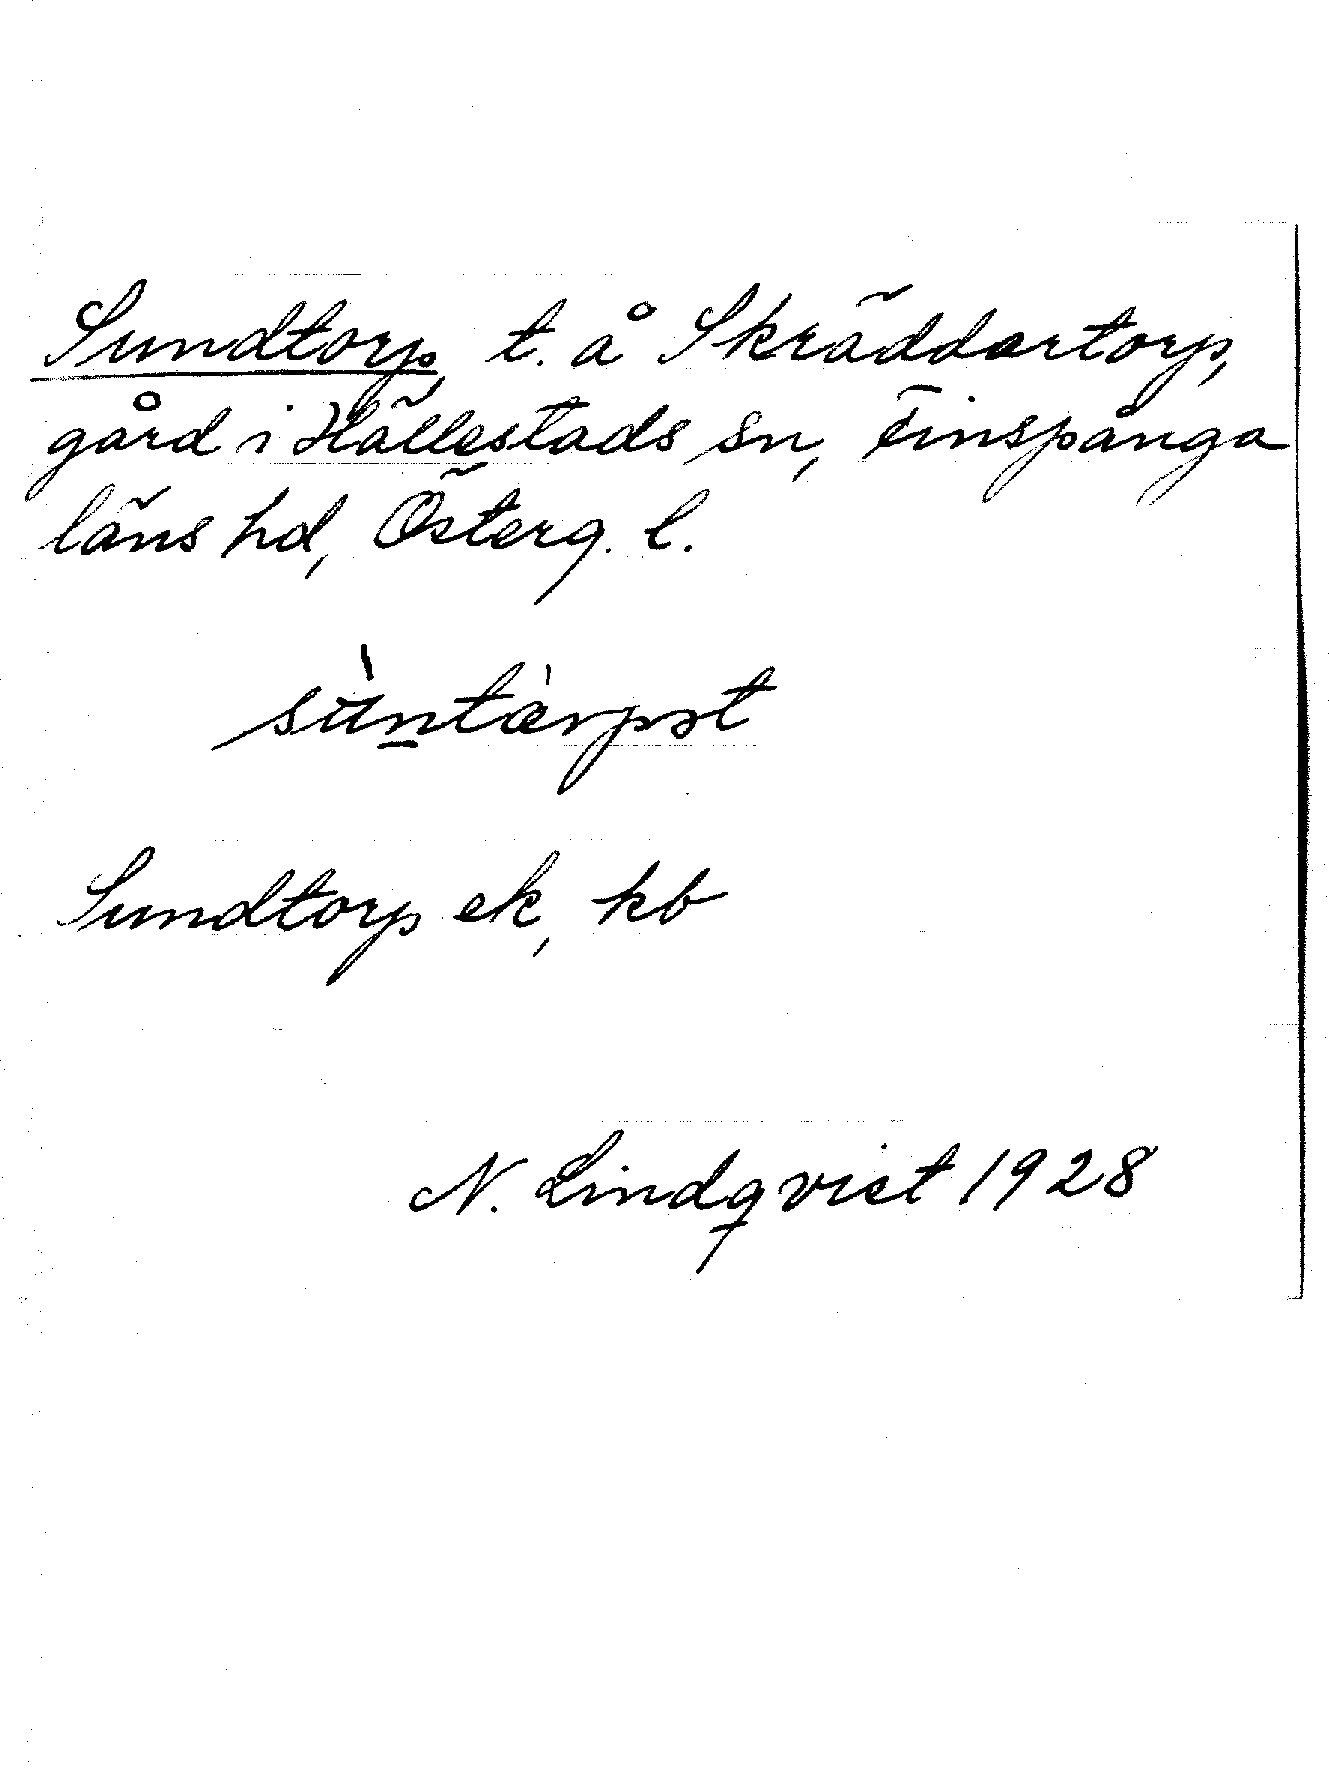 Sundtorp, t. å Skräddartorp,
gård i Hällestads sn, Finspånga
läns hd, Österg. l.
sùntàrpət
Sundtorp ek, kb
N. Lindqvist 1928